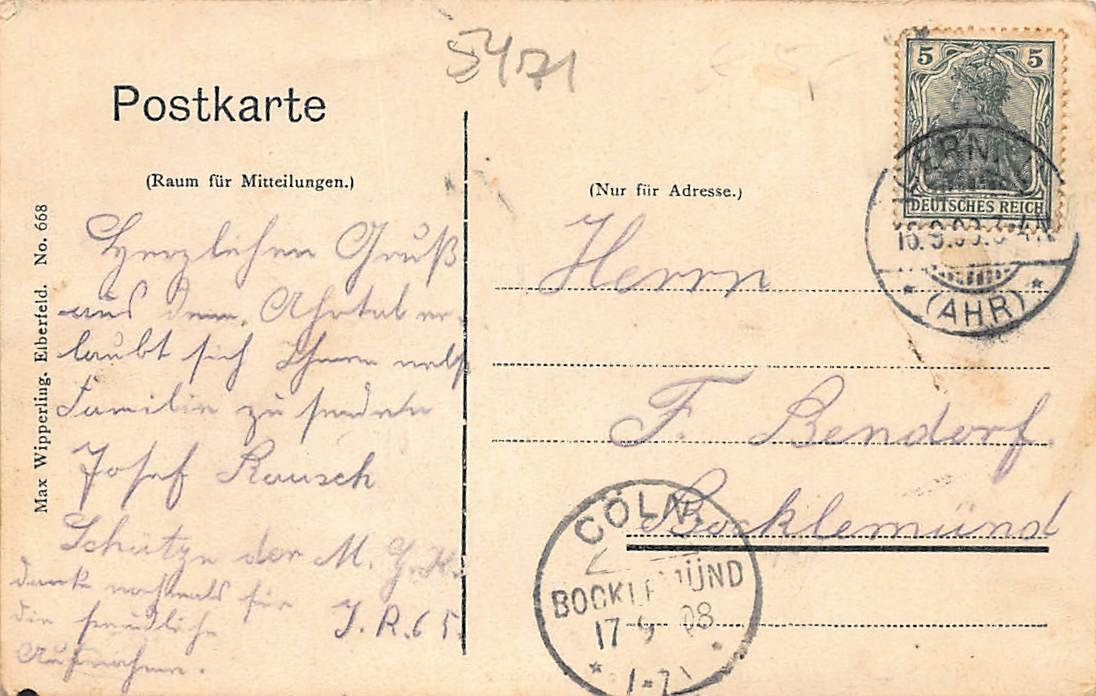 5471
Postkarte
(Raum für Mitteilungen.)
Max Wipperling. Elberfeld. No. 668
Herzlichen Gruß
aus dem Ahrtal er-
laubt sich Ihnen nebst
Familie zu senden
Josef Rausch
Schütze der M. G. K.
I.R.65.
danke nochmals für
die freundliche
Aufnahme.
(Nur für Adresse.)
Herrn
F. Bendorf.
Bocklemünd
5 5
DEUTSCHES REICH
KERN
16.9.08.3-4N
* (AHR) *
CÖLN
BOCKLEMÜND
17 9 08